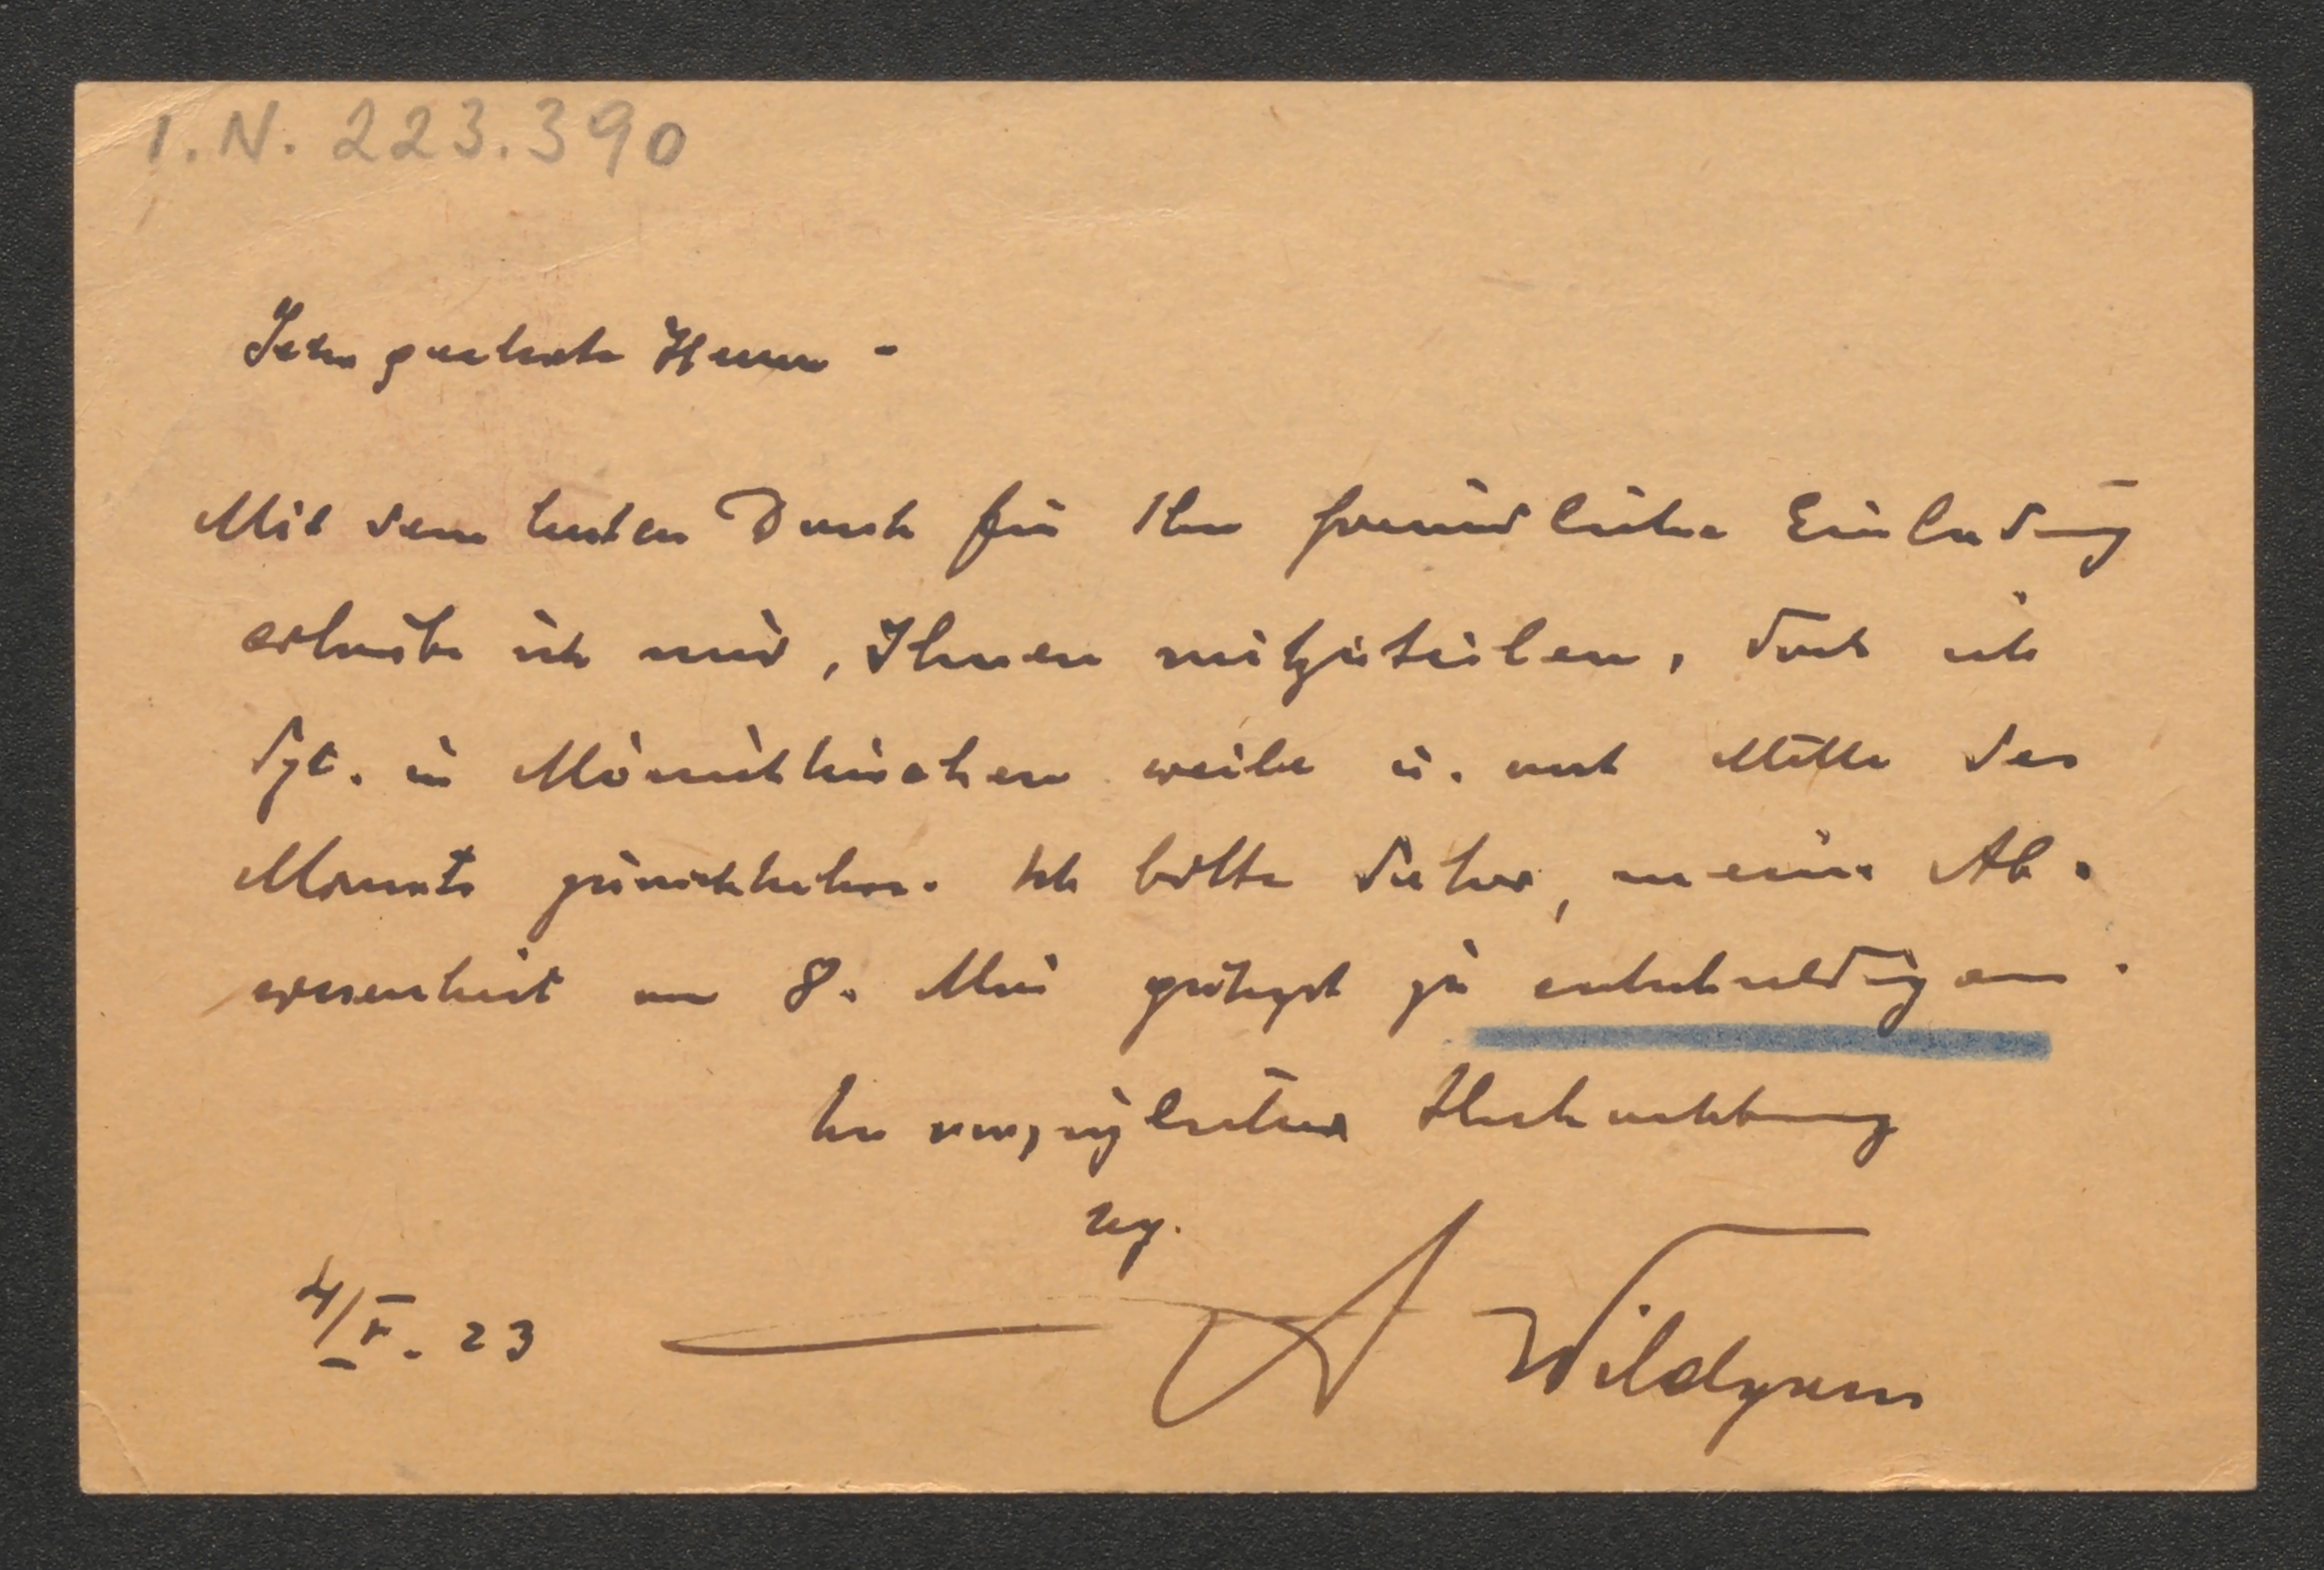 I.N. 223.390
Sehr geehrte Herren -
Mit dem besten Dank für Ihre freundliche Einladung
erlaube ich mir, Ihnen mitzuteilen, dass ich
dzt. in Mönichkirchen weile u. erst Mitte des
Monats zurückkehre. Ich bitte daher, meine Ab-
wesenheit am 8. Mai gütigst zu entschuldigen.
In vorzüglicher Hochachtung
erg.
4/V. 23
A Wildgans